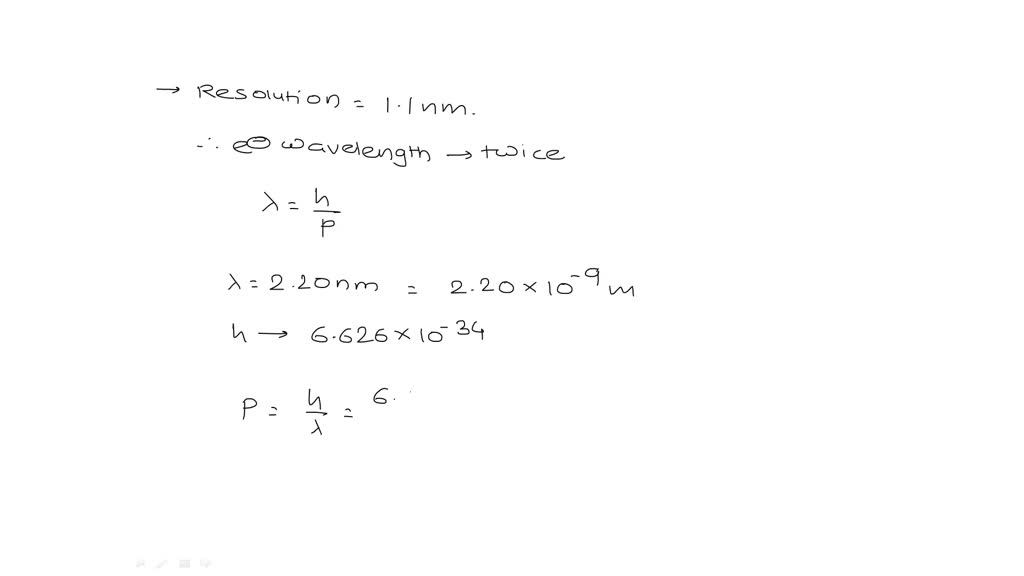 → Resolution = 1.1nm.
∴ e⊖ wavelength → twice
λ = h/P
λ = 2.20nm = 2.20 × 10⁻⁹ m
h → 6.626 × 10⁻³⁴
P = h/λ = 6.